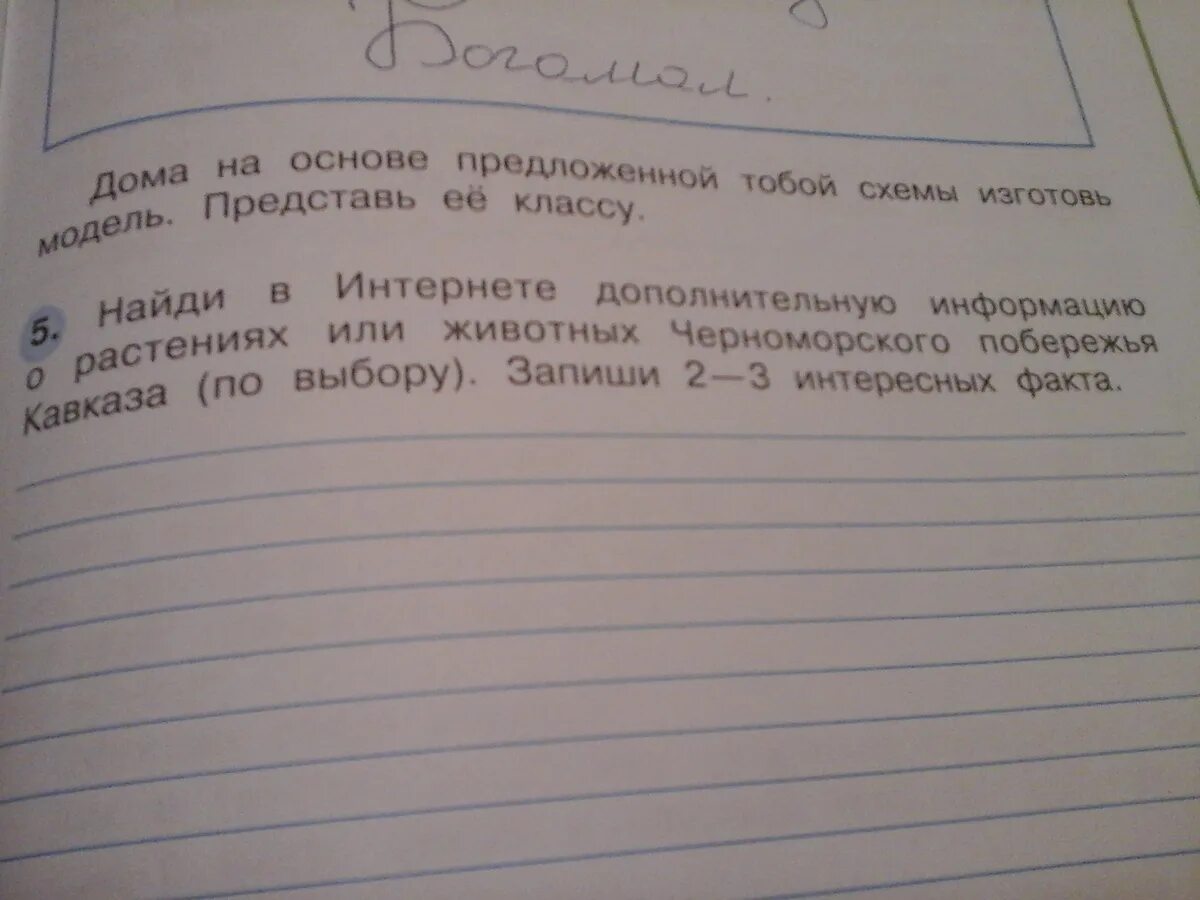 Богомол.
Дома на основе предложенной тобой схемы изготовь
модель. Представь её классу.
5. Найди в Интернете дополнительную информацию
о растениях или животных Черноморского побережья
Кавказа (по выбору). Запиши 2—3 интересных факта.